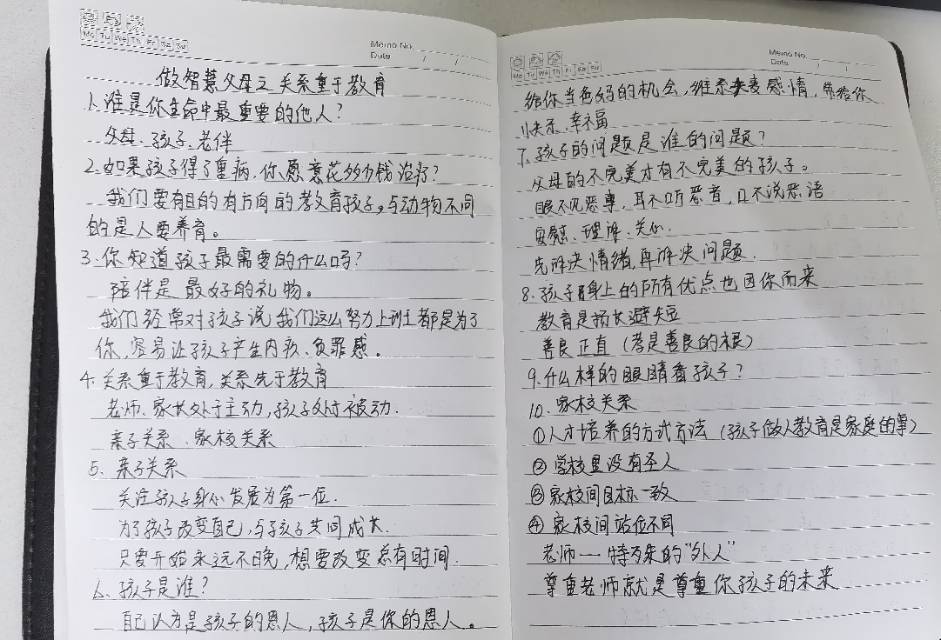 Mo Tu We Th Fr Sa Su
Memo No.
Date / /
做智慧父母之 关系重于教育
1.谁是你生命中最重要的他人?
父母、孩子、老伴
2.如果孩子得了重病,你愿意花多少钱治疗?
我们要有目的有方向的教育孩子。与动物不同
的是人要养育。
3.你知道孩子最需要的什么吗?
陪伴是最好的礼物。
我们经常对孩子说我们这么努力上班都是为了
你,容易让孩子产生内疚、负罪感。
4.关系重于教育,关系先于教育
老师、家长处于主动,孩子处于被动.
亲子关系、家校关系
5.亲子关系
关注孩子身心发展为第一位.
为了孩子改变自己,与孩子共同成长.
只要开始永远不晚,想要改变总有时间.
6.孩子是谁?
自己认为是孩子的恩人,孩子是你的恩人。
Mo Tu We Th Fr Sa Su
Memo No.
Date / /
给你当爸妈的机会,维系夫妻感情,带给你
快乐、幸福
7.孩子的问题是谁的问题?
父母的不完美才有不完美的孩子。
眼不见恶事,耳不听恶音,口不说恶语
安慰、理解、关心.
先解决情绪,再解决问题.
8.孩子身上的所有优点也因你而来
教育是扬长避短
善良 正直 (孝是善良的根)
9.什么样的眼睛看孩子?
10.家校关系
①人才培养的方式方法 (孩子做人教育是家庭的事)
②学校里没有圣人
③家校间目标一致
④家校间站位不同
老师——特殊的"外人"
尊重老师就是尊重你孩子的未来